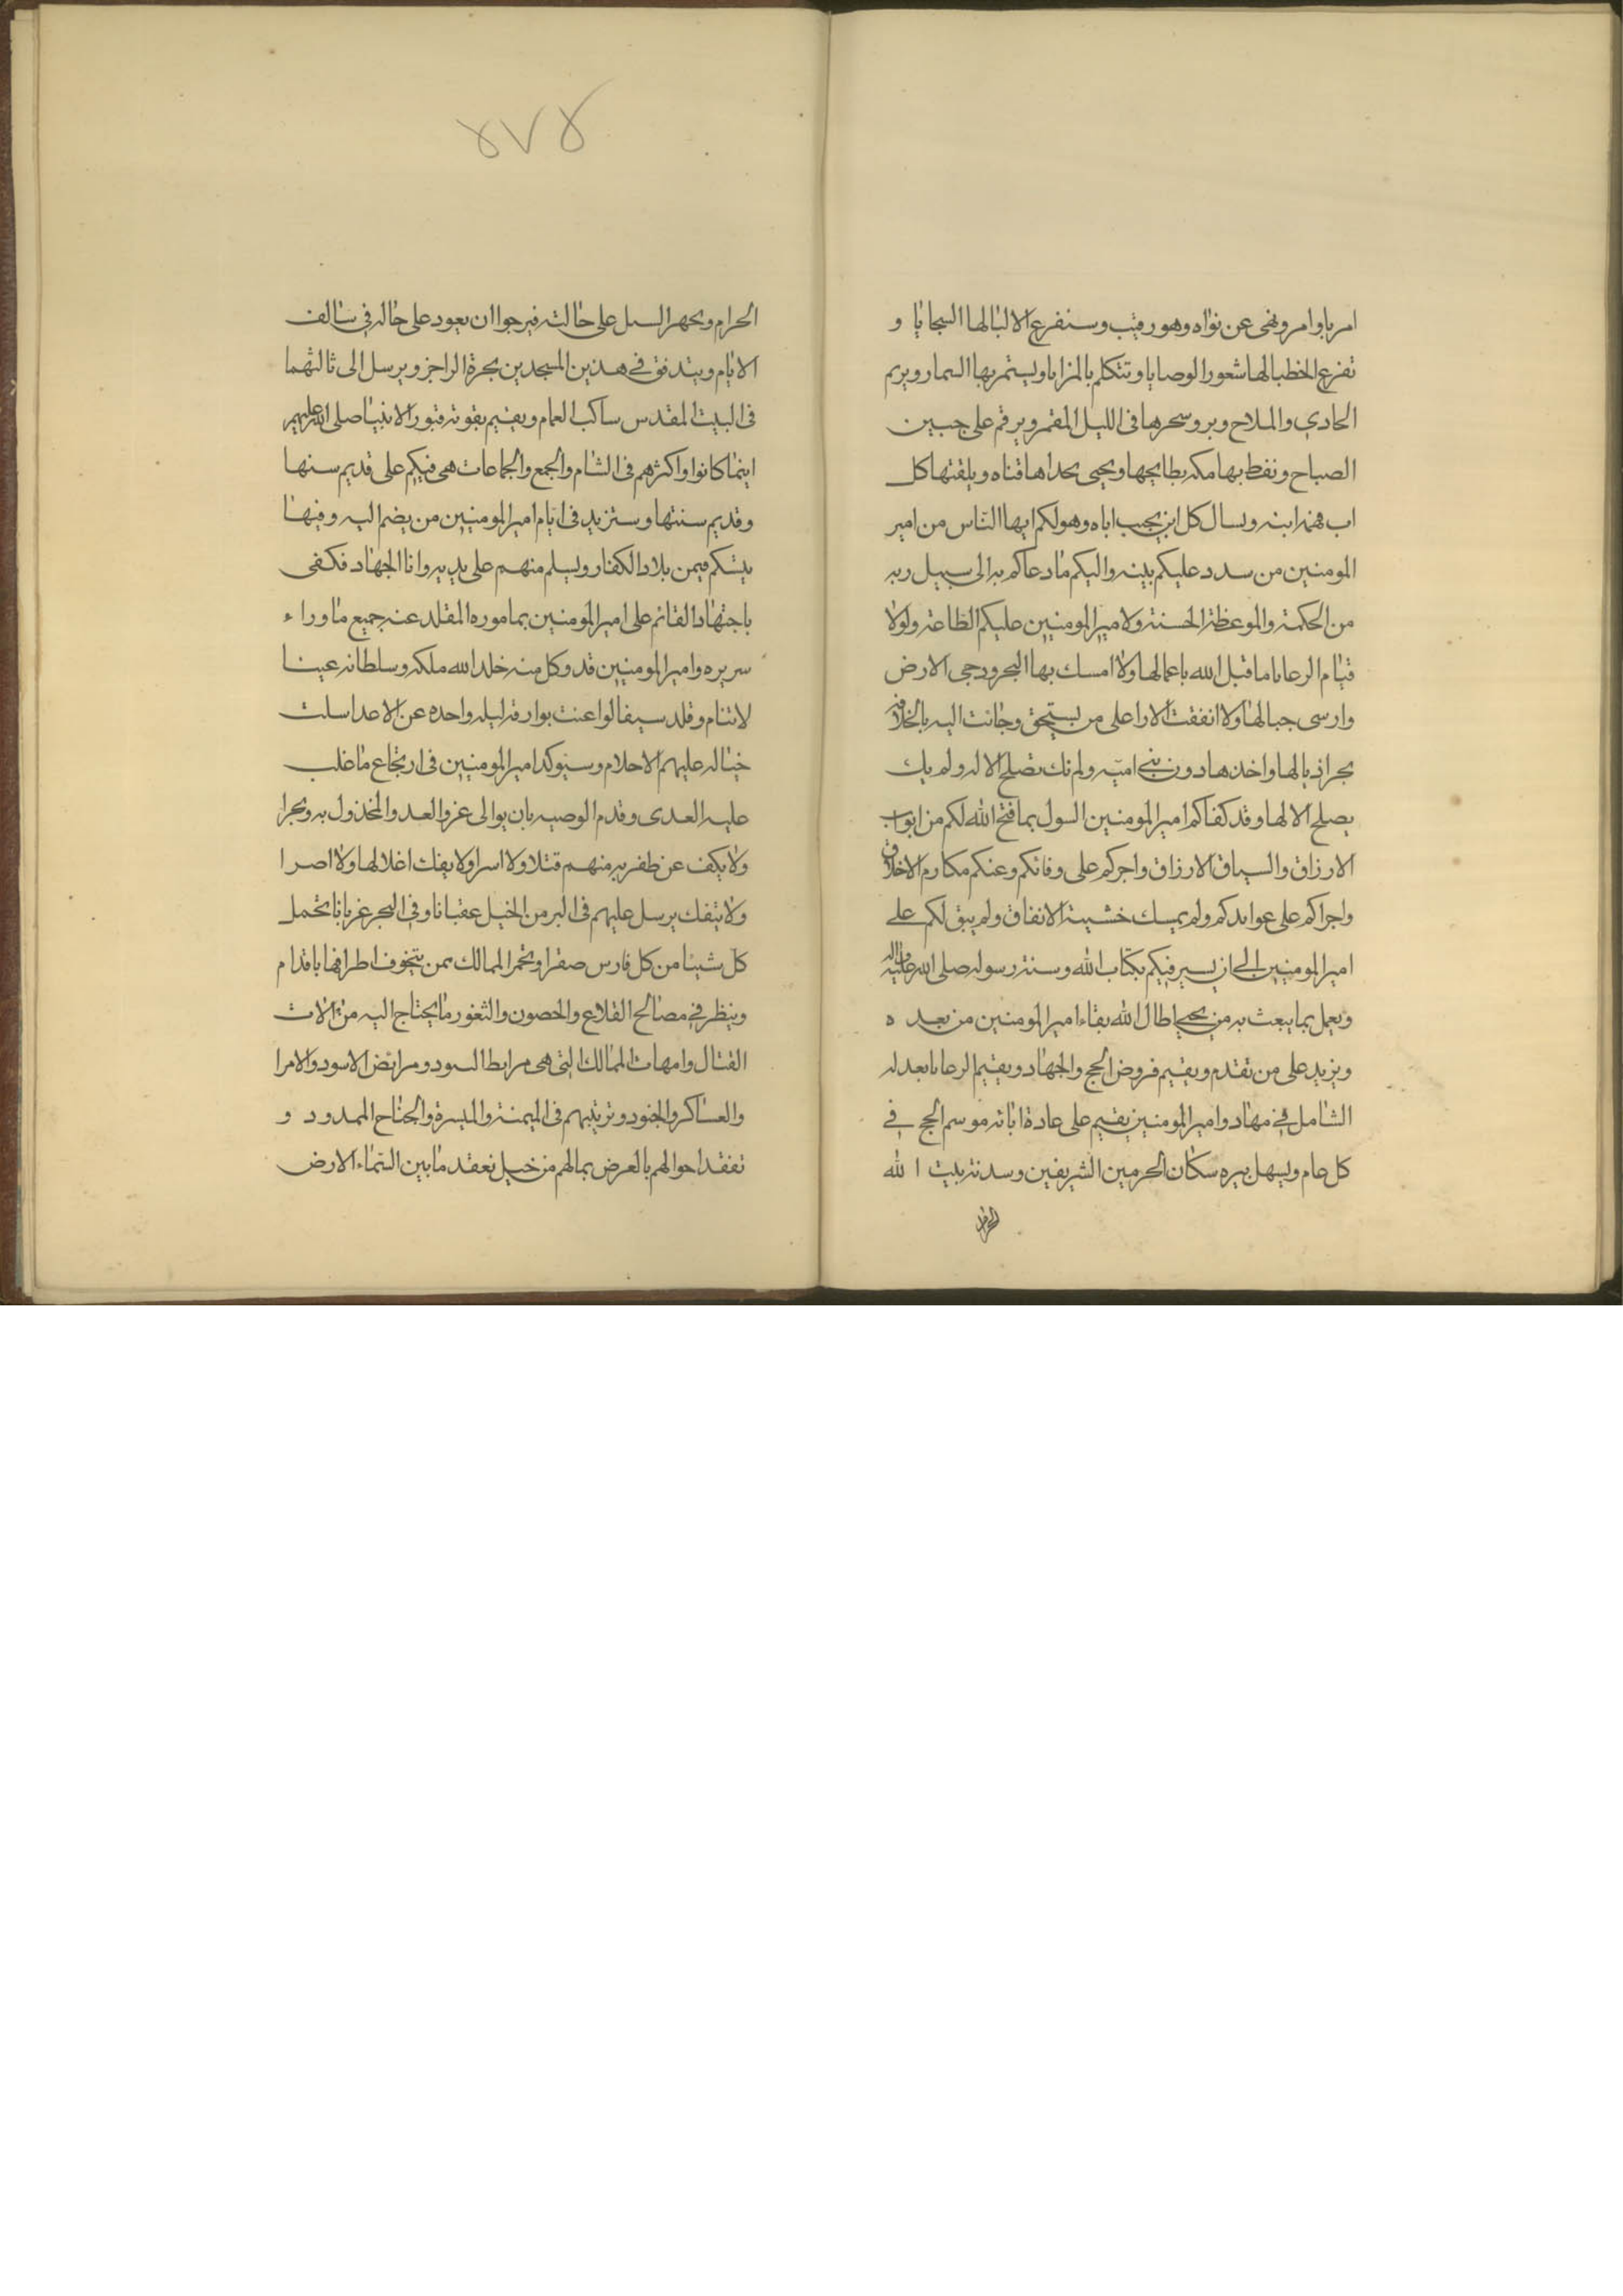 امر باوامر ونهى عن نواه وهو رقيب وستفرع الالبا لها السجايا و
تفرع الخطبا لها شعور الوصايا وتتكلم بالمزايا ويستمر بها السمار ويريم
الحادي والملاح ويروسحرها فى الليل المقمر ويرقم على جبين
الصباح وتفط بها مكه بطايحها ويحيى بحداها قناه ويلقنها كل
اب فهم ابنه ويسال كل ابن يجيب اباه وهو لكم ايها الناس من امير
المومنين من سدد عليكم بينه واليكم ما دعاكم به الى سبيل ربه
من الحكمة والموعظة الحسنة ولامير المومنين عليكم الطاعة ولولا
قيام الرعايا ما قبل الله باعمالها ولا امسك بها البحر ودحى الارض
وارسى جبالها ولا اتفقت الارا على من يستحق وجات اليه بالخلافه
تجر اذيالها واخذها دون بنى اميه ولم تك تصلح الا له ولم يك
يصلح الا لها وقد كفاكم امير المومنين السول بما فتح الله لكم من ابواب
الارزاق والسياق الارزاق واجركم على وفاتكم وعنكم مكارم الاخلاق
واجراكم على عوايدكم ولم يمسك خشية الانفاق ولم يبق لكم على
امير المومنين الا ان يسير فيكم بكتاب الله وسنة رسوله صلى الله عليه واله
ويعمل بما يبعث به من يحيى اطال الله بقاء امير المومنين من بعد ه
ويزيد على من تقدم ويقيم فروض الحج والجهاد ويقيم الرعايا بعدله
الشامل فى مهاد وامير المومنين يقيم على عادة ابائه موسم الحج فى
كل عام ويسهل بيره سكان الحرمين الشريفين وسدنة بيت الله
الحرام
٤٧٤
الحرام ويجهر السبل على حالته فيرجوا ان يعود على حاله فى سالف
الايام ويتدفق فى هذين المسجدين بحرة الراجز ويرسل الى ثالثهما
فى البيت المقدس ساكب الغمام ويقيم بقوته قبور الانبيا صلى الله عليهم
اينما كانوا واكثرهم فى الشام والجمع والجماعات هى فيكم على قديم سنها
وقديم سنتها وستزيد فى ايام امير المومنين من يضم اليه وفيها
يتسكم فيمن بلاد الكفار ويسلم منهم على يديه واما الجهاد فكفى
باجتهاد القائم على امير المومنين بما موره المقلد عنه جميع ما وراء
سريره وامير المومنين قد وكل منه خلد الله ملكه وسلطانه عينا
لا تنام وقلد سيفا لو اعنت بوارقه ليله واحده عن الاعدا سلت
خياله عليهم الاحلام وسيوكد امير المومنين فى ارتجاع ما غلب
عليه العدى وقدم الوصيه بان يوالى غزو العدو المخذول به وبحرا
ولا يكف عن ظفر به منهم قتلا ولا اسرا ولا يفك اغلالها ولا اصرا
ولا ينفك يرسل عليهم فى البر من الخيل عقبانا وفى البحر غربانا تحمل
كل شيئا من كل فارس صقرا وتحمر الممالك بمن يتخوف اطرافها باقدام
وينظر فى مصالح القلاع والحصون والثغور ما يحتاج اليه من الات
القتال وامهات الممالك التى هى مرابط السود ومرابض الاسود والامرا
والعساكر والجنود وترتيبهم فى الميمنة والميسرة والجناح الممدود و
تفقد احوالهم بالعرض بمالهم من خيل تعقد ما بين السماء الارض